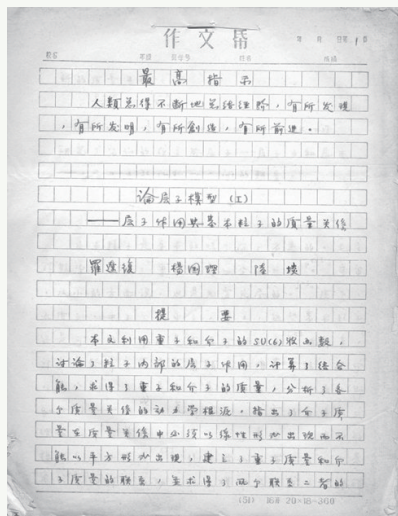 作文稿
最高指示
人類总得不断地总结经验，有所发现
，有所发明，有所創造，有所前进。
論层子模型（I）
——层子作用與基本粒子的质量关係
羅遼復 楊国琛 陸埮
提 要
本文利用重子和介子的SU(6)波函数，
讨论了粒子内部的层子作用，计算了结合
能，求得了重子和介子的质量，分析了各
个质量关係的动力学根源。指出了介子质
量在质量关係中必须以線性形式出现而不
能以平方形式出现，建立了重子质量和介
子质量的联系，並求得了两个联系二者的